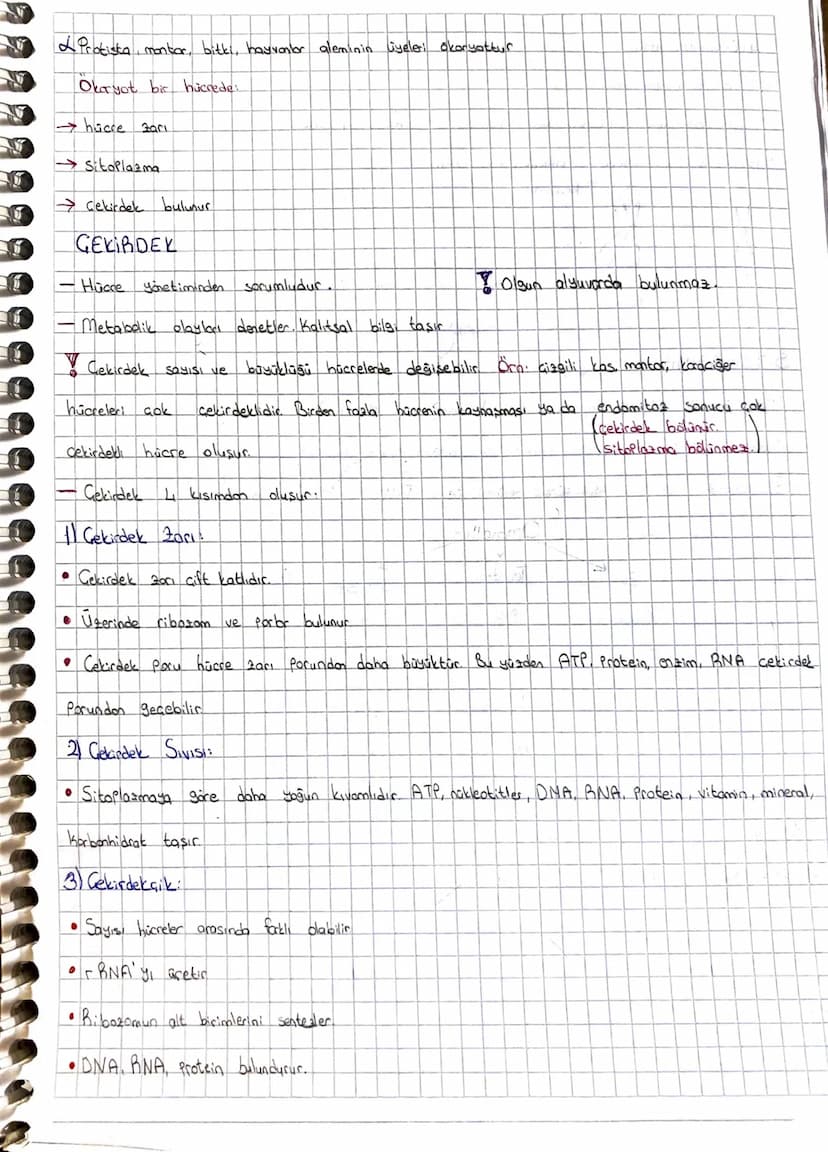 α Protista, mantar, bitki, hayvanlar aleminin üyeleri ökaryottur
Ökaryot bir hücrede:
→ hücre zarı
→ Sitoplazma
→ çekirdek bulunur
ÇEKİRDEK
– Hücre yönetiminden sorumludur. ! Olgun alyuvarda bulunmaz.
– Metabolik olayları denetler. Kalıtsal bilgi taşır
! Çekirdek sayısı ve büyüklüğü hücrelerde değişebilir. Örn: çizgili kas, mantar, karaciğer
hücreleri çok çekirdeklidir. Birden fazla hücrenin kaynaşması ya da endomitoz sonucu çok
(çekirdek bölünür.
çekirdekli hücre oluşur.
sitoplazma bölünmez.)
– Çekirdek 4 kısımdan oluşur:
1) Çekirdek Zarı:
• Çekirdek zarı çift katlıdır.
• Üzerinde ribozom ve porlar bulunur
• Çekirdek poru hücre zarı porundan daha büyüktür. Bu yüzden ATP, Protein, enzim, RNA çekirdek
Porundan geçebilir.
2) Çekirdek Sıvısı:
• Sitoplazmaya göre daha yoğun kıvamlıdır. ATP, nükleotitler, DNA, RNA, Protein, vitamin, mineral,
Karbonhidrat taşır.
3) Çekirdekçik:
• Sayısı hücreler arasında farklı olabilir
• rRNA'yı üretir
• Ribozomun alt birimlerini sentezler.
• DNA, RNA, Protein bulundurur.